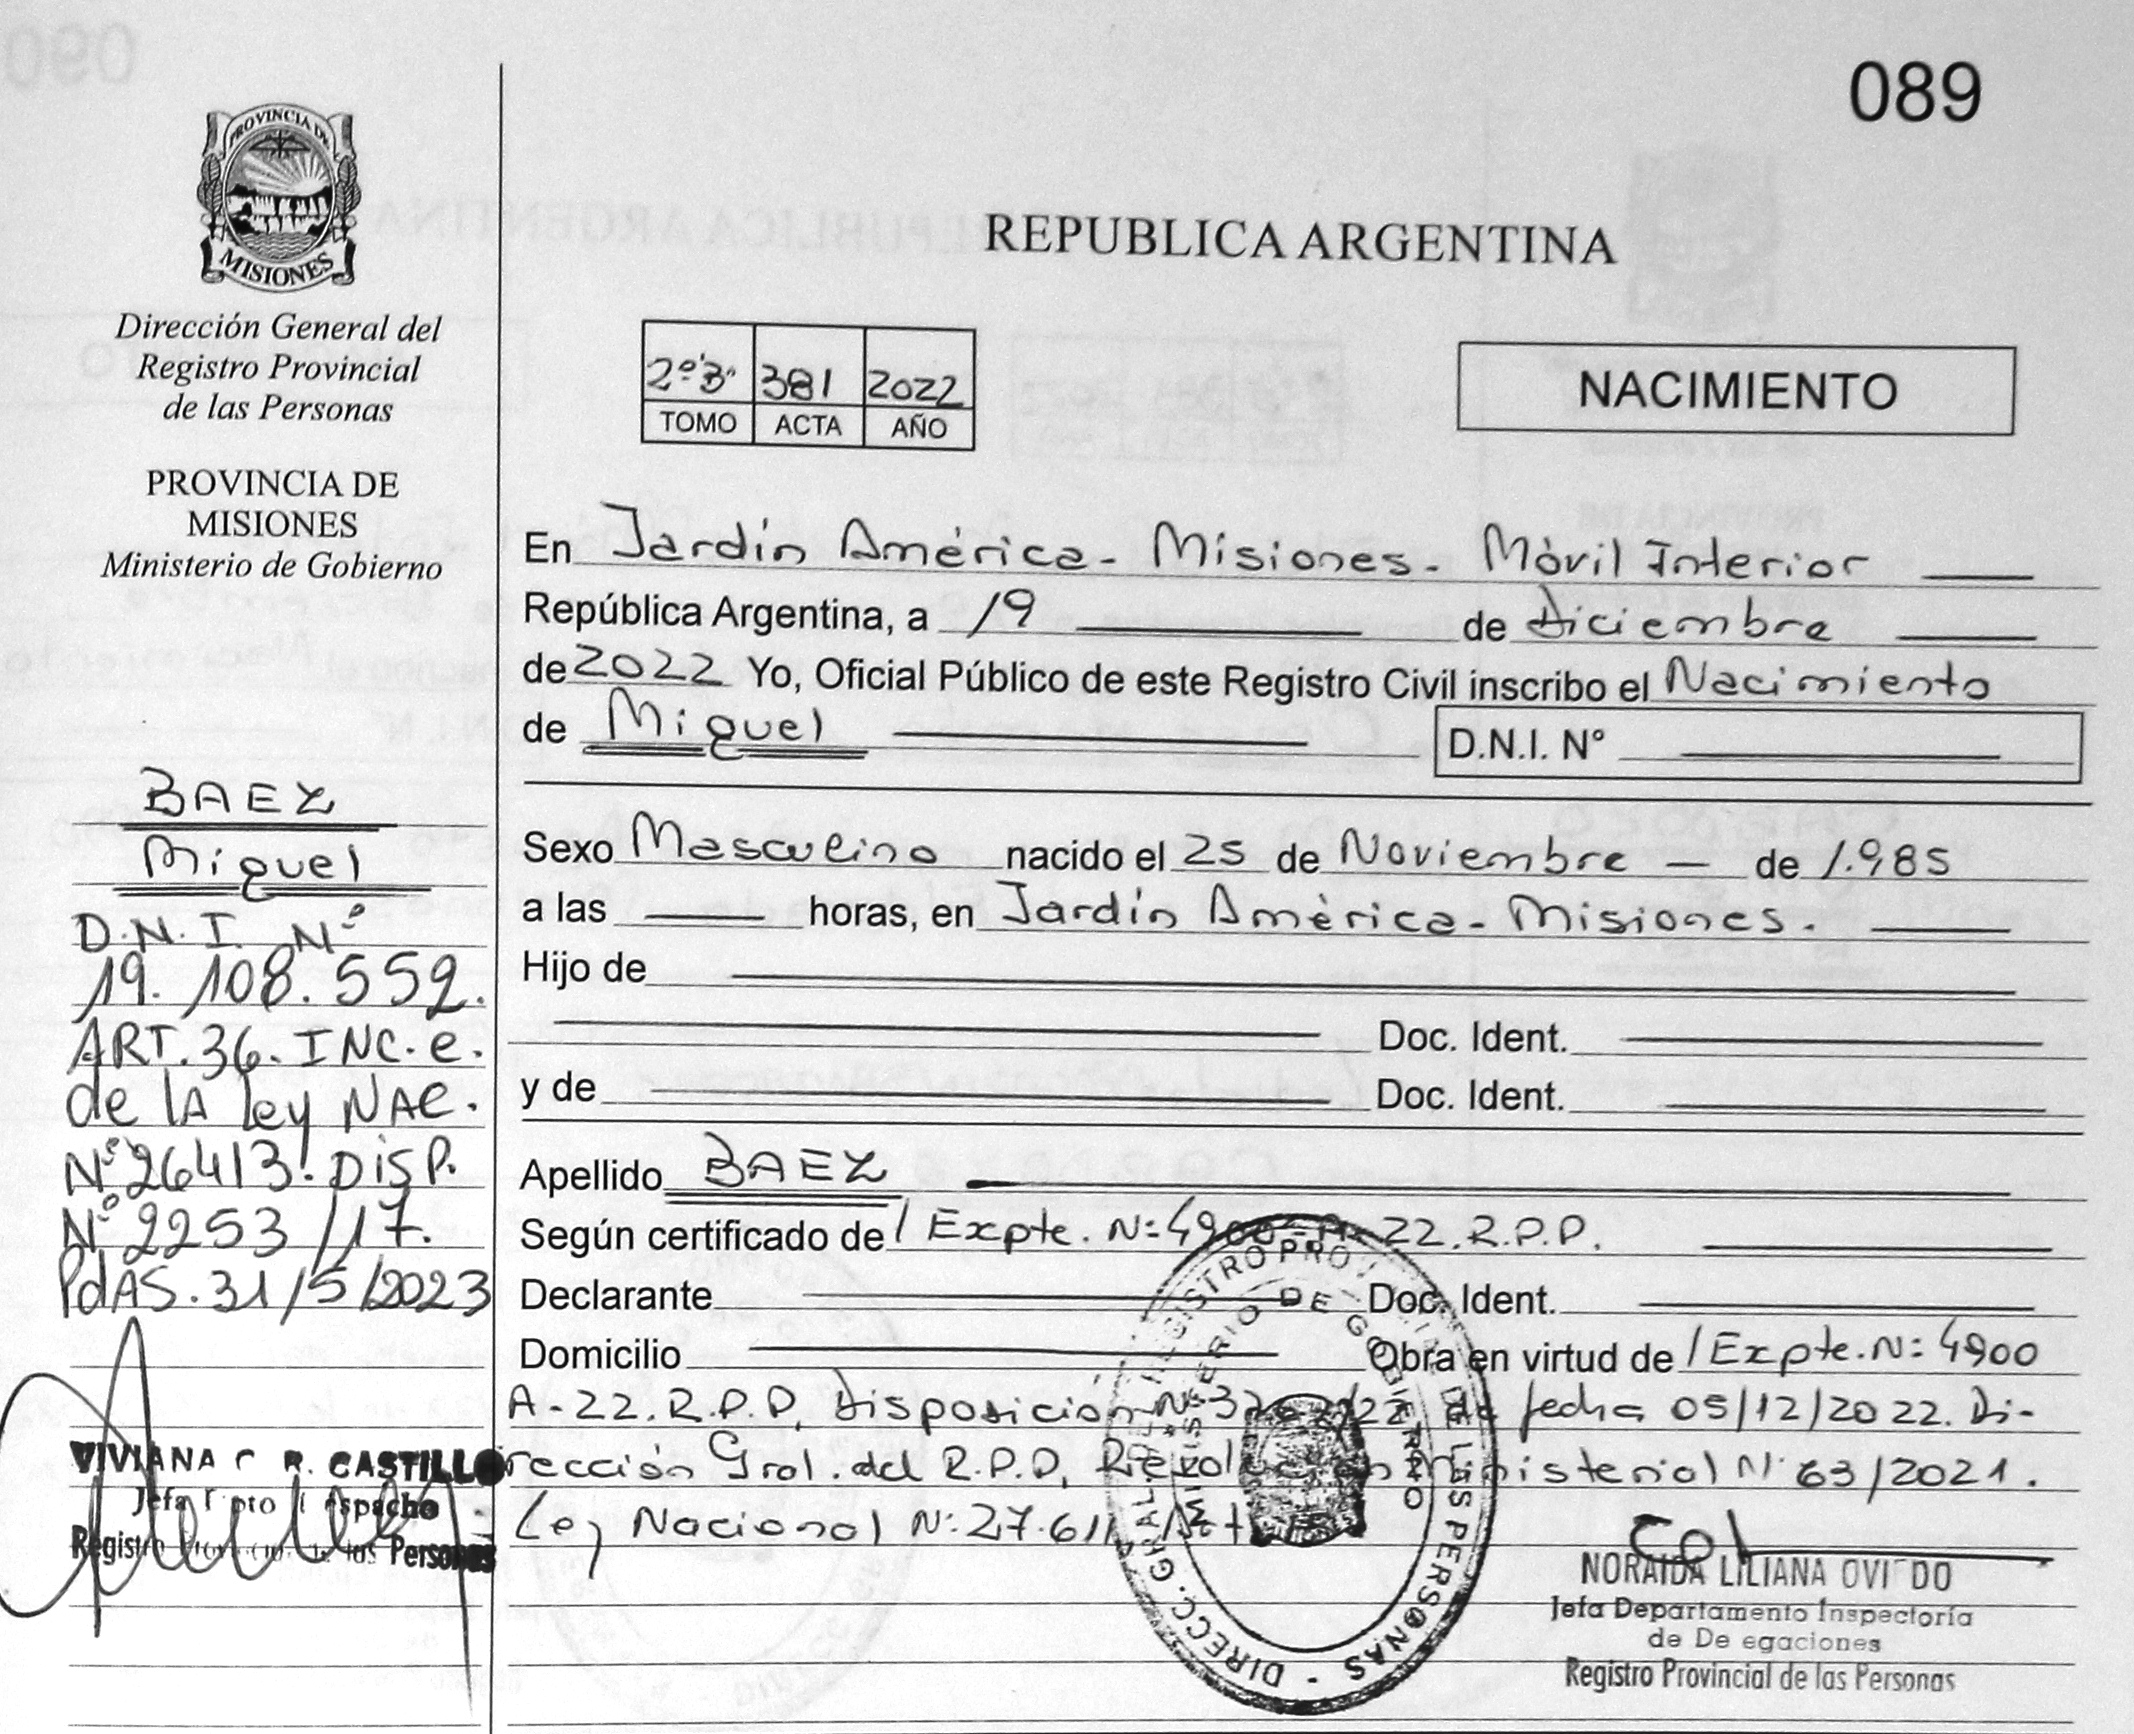 089
PROVINCIA DE
MISIONES
Dirección General del
Registro Provincial
de las Personas
PROVINCIA DE
MISIONES
Ministerio de Gobierno
REPUBLICA ARGENTINA
2º"B" 381 2022
TOMO ACTA AÑO
NACIMIENTO
En Jardín América - Misiones - Móvil Interior
República Argentina, a 19 de Diciembre
de 2022 Yo, Oficial Público de este Registro Civil inscribo el Nacimiento
de Miguel D.N.I. N°
Sexo Masculino nacido el 25 de Noviembre de 1.985
a las horas, en Jardín América - Misiones.
Hijo de
Doc. Ident.
y de Doc. Ident.
Apellido BAEZ
Según certificado de / Expte. Nº 4900-A-22.R.P.P.
Declarante Doc. Ident.
Domicilio Obra en virtud de / Expte. Nº 4900
A-22.R.P.P, Disposición Nº de fecha 05/12/2022. Di-
rección Gral. del R.P.P, Resolución Ministerial Nº 63/2021.
Ley Nacional Nº 27.611
BAEZ
Miguel
D.N.I. Nº
19.108.559.
ART.36.INC.e.
de lA ley NAC.
Nº26413. DISP.
Nº 2253/17.
PdAS.31/5/2023
VIVIANA R. CASTILLO
Jefa Dpto Despacho
Registro de las Personas
DIRECC. GRAL. DE REGISTRO PROVINCIAL DE LAS PERSONAS
MINISTERIO DE GOBIERNO
NORAIDA LILIANA OVIEDO
Jefa Departamento Inspectoría
de Delegaciones
Registro Provincial de las Personas